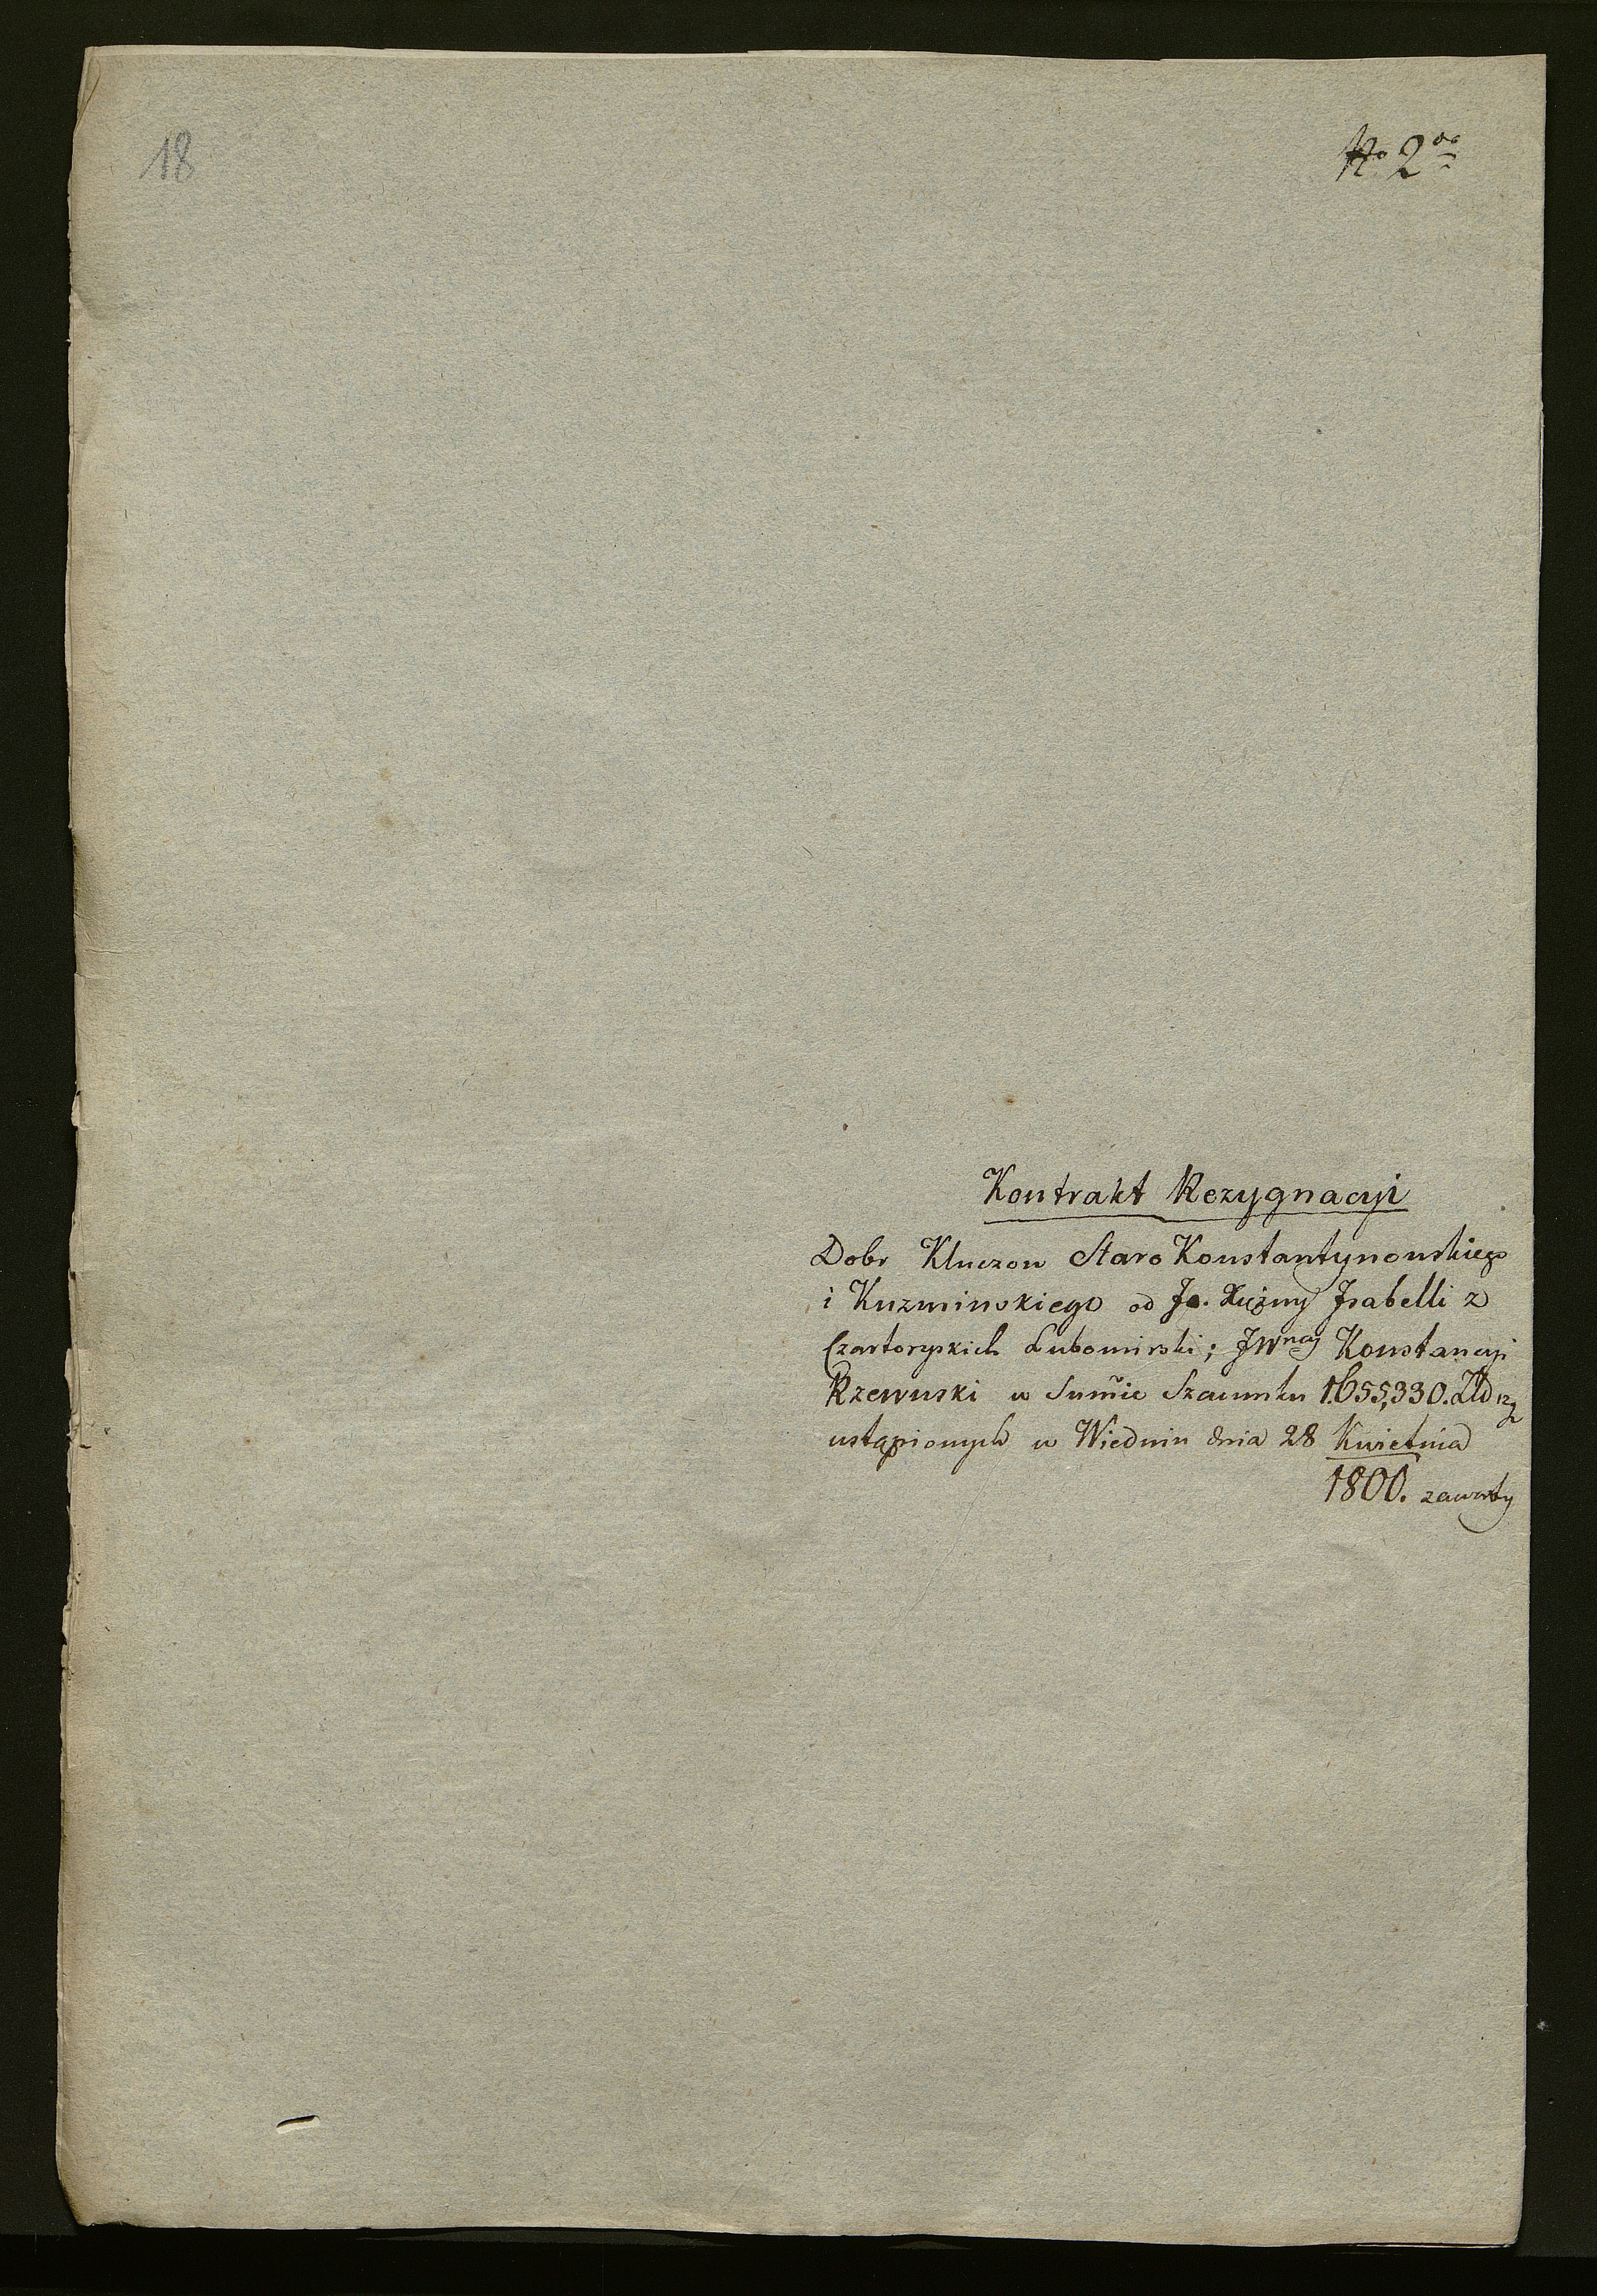 18
No 2do
Kontrakt Rezygnacyi
Dobr Kluczow Staro Konstantynowskiego
i Kuzminskiego od Jo. Xiężny Izabelli z
Czartoryskich Lubomirski; JWney Konstancyi
Rzewuski w Sum̃ie Szacunku 1.655,330. Złł
ustąpionych w Wiedniu dnia 28 Kwietnia
1800. zawarty